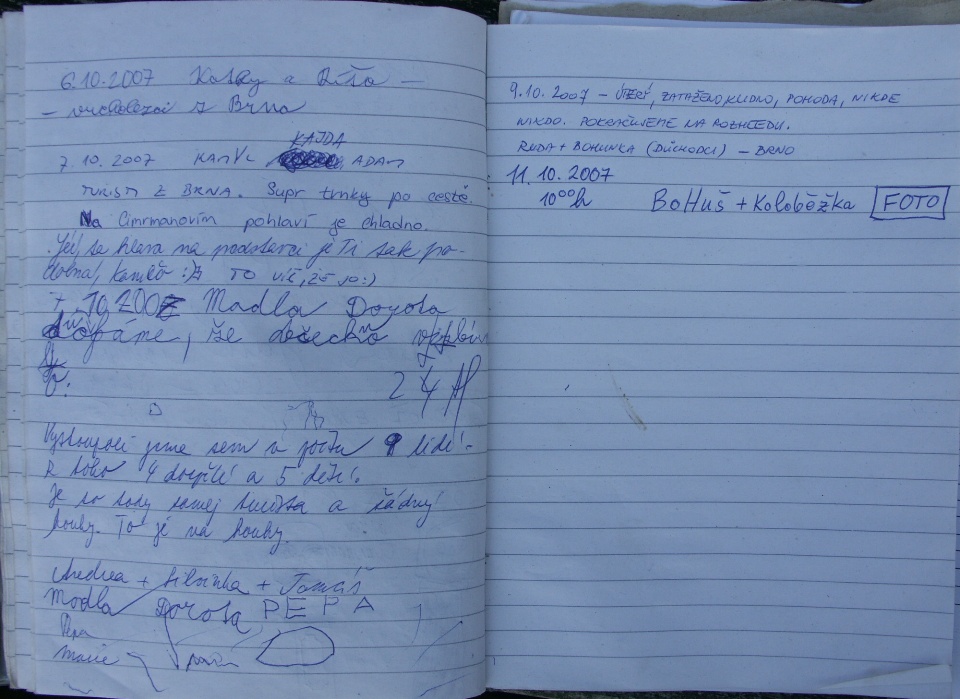 6.10.2007 Katky a Ríša –
– vrcholozci z Brna
KAJDA
7.10.2007 KAMYL ADAM
TURISTI Z BRNA. Supr trnky po cestě.
Na Cimrmanovím pohlaví je chladno.
Jéé, ta hlava na podstavci je Ti tak po-
dobná, Kamčo :) TO VÍŠ, ŽE JO:)
7.10.2007 Madla Dorota
doufáme, že dědečko
24
Vystoupali jsme sem v počtu 9 lidí.
Z toho 4 dospělí a 5 dětí.
Je to tady samej turista a žádný
houby. To je na houby.
Andrea + + Tomáš
Madla Dorota PEPA
Pepa
Marie
9.10.2007 – ÚTERÝ, ZATAŽENO, KLIDNO, POHODA, NIKDE
NIKDO. POKRAČUJEME NA ROZHLEDU.
RUDA + BOHUNKA (DŮCHODCI) – BRNO
11.10.2007
10⁰⁰h BoHuš + Koloběžka FOTO